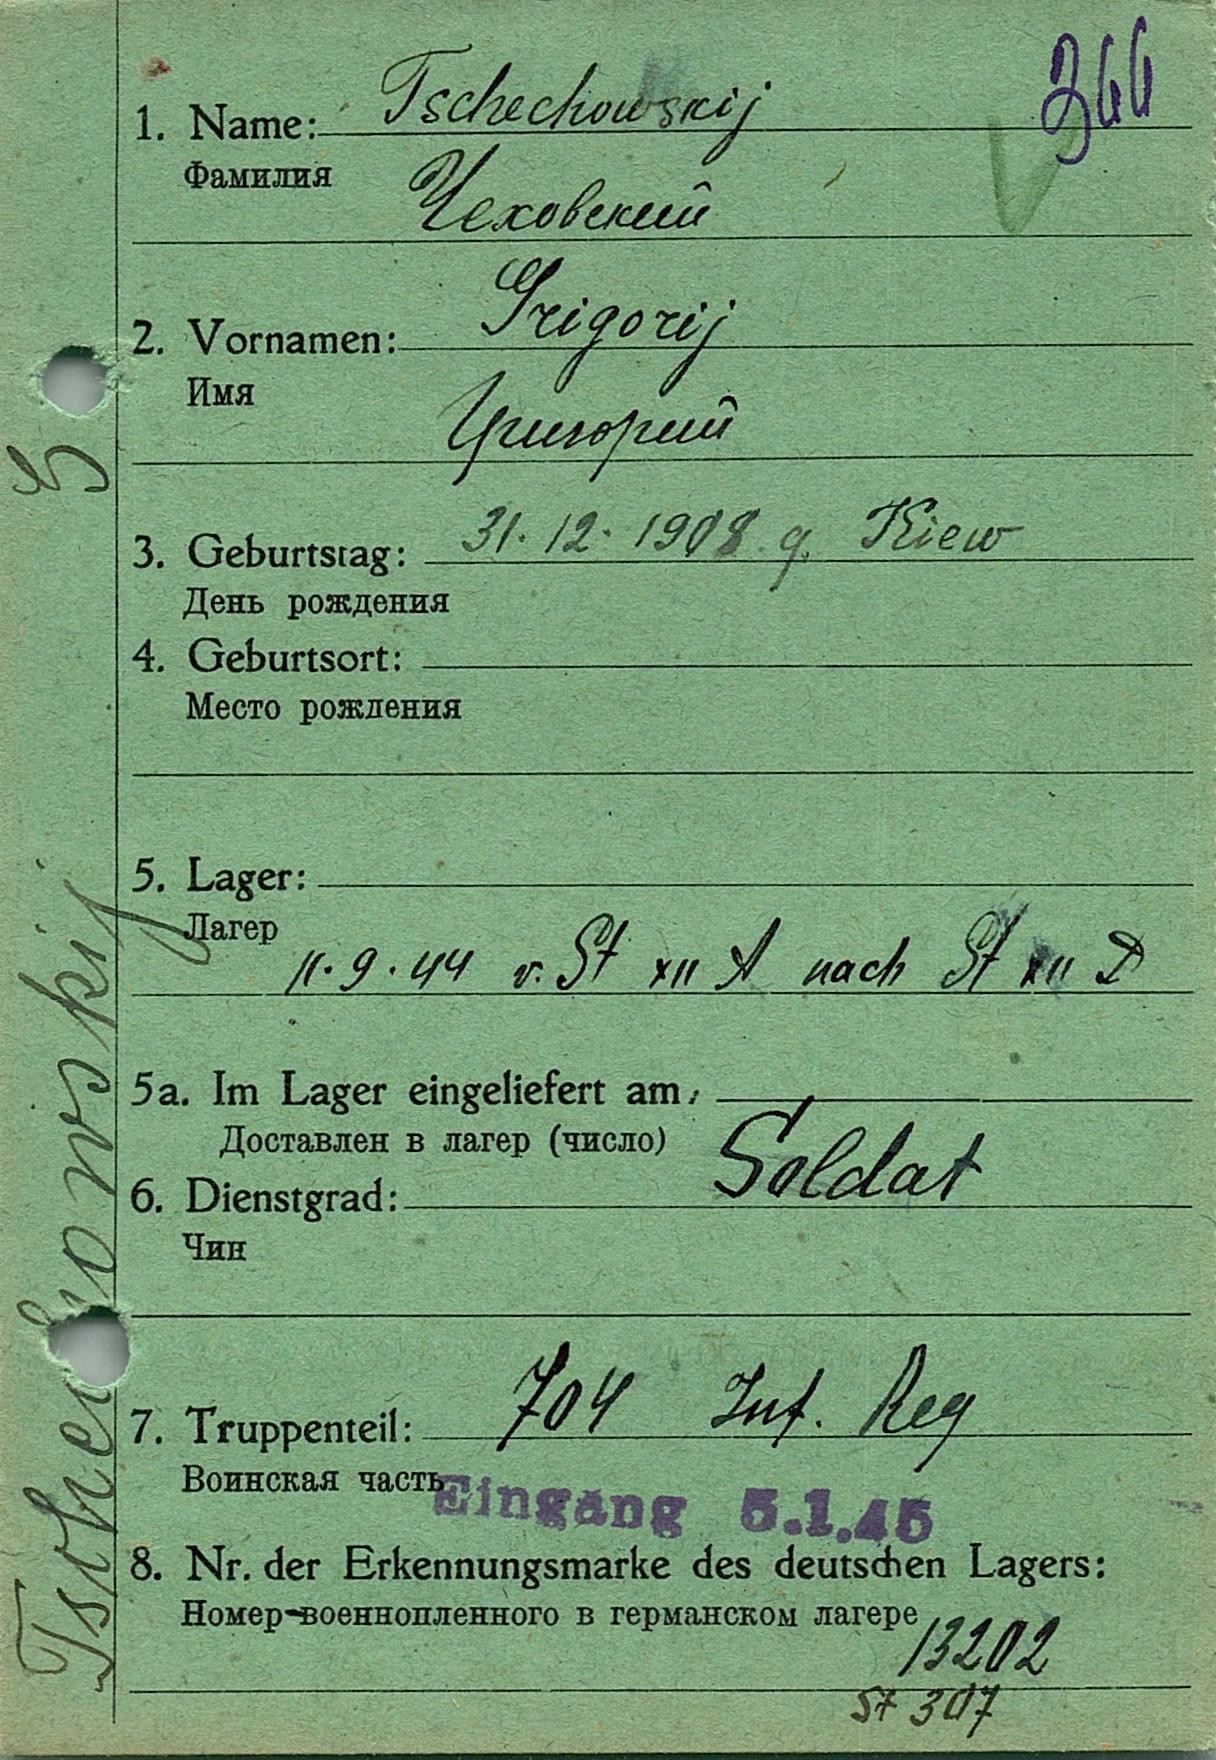 366
1. Name: Tschechowskij
Фамилия
Чеховский
2. Vornamen: Grigorij
Имя
Григорий
3. Geburtstag: 31.12.1908 g. Kiew
День рождения
4. Geburtsort:
Место рождения
5. Lager:
Лагер
11.9.44 v. St XII A nach St XII D
5a. Im Lager eingeliefert am:
Доставлен в лагер (число)
6. Dienstgrad: Soldat
Чин
7. Truppenteil: 704 Inf. Reg
Воинская часть
Eingang 5.1.45
8. Nr. der Erkennungsmarke des deutschen Lagers:
Номер военнопленного в германском лагере
13202
St 307
Tschechowskij